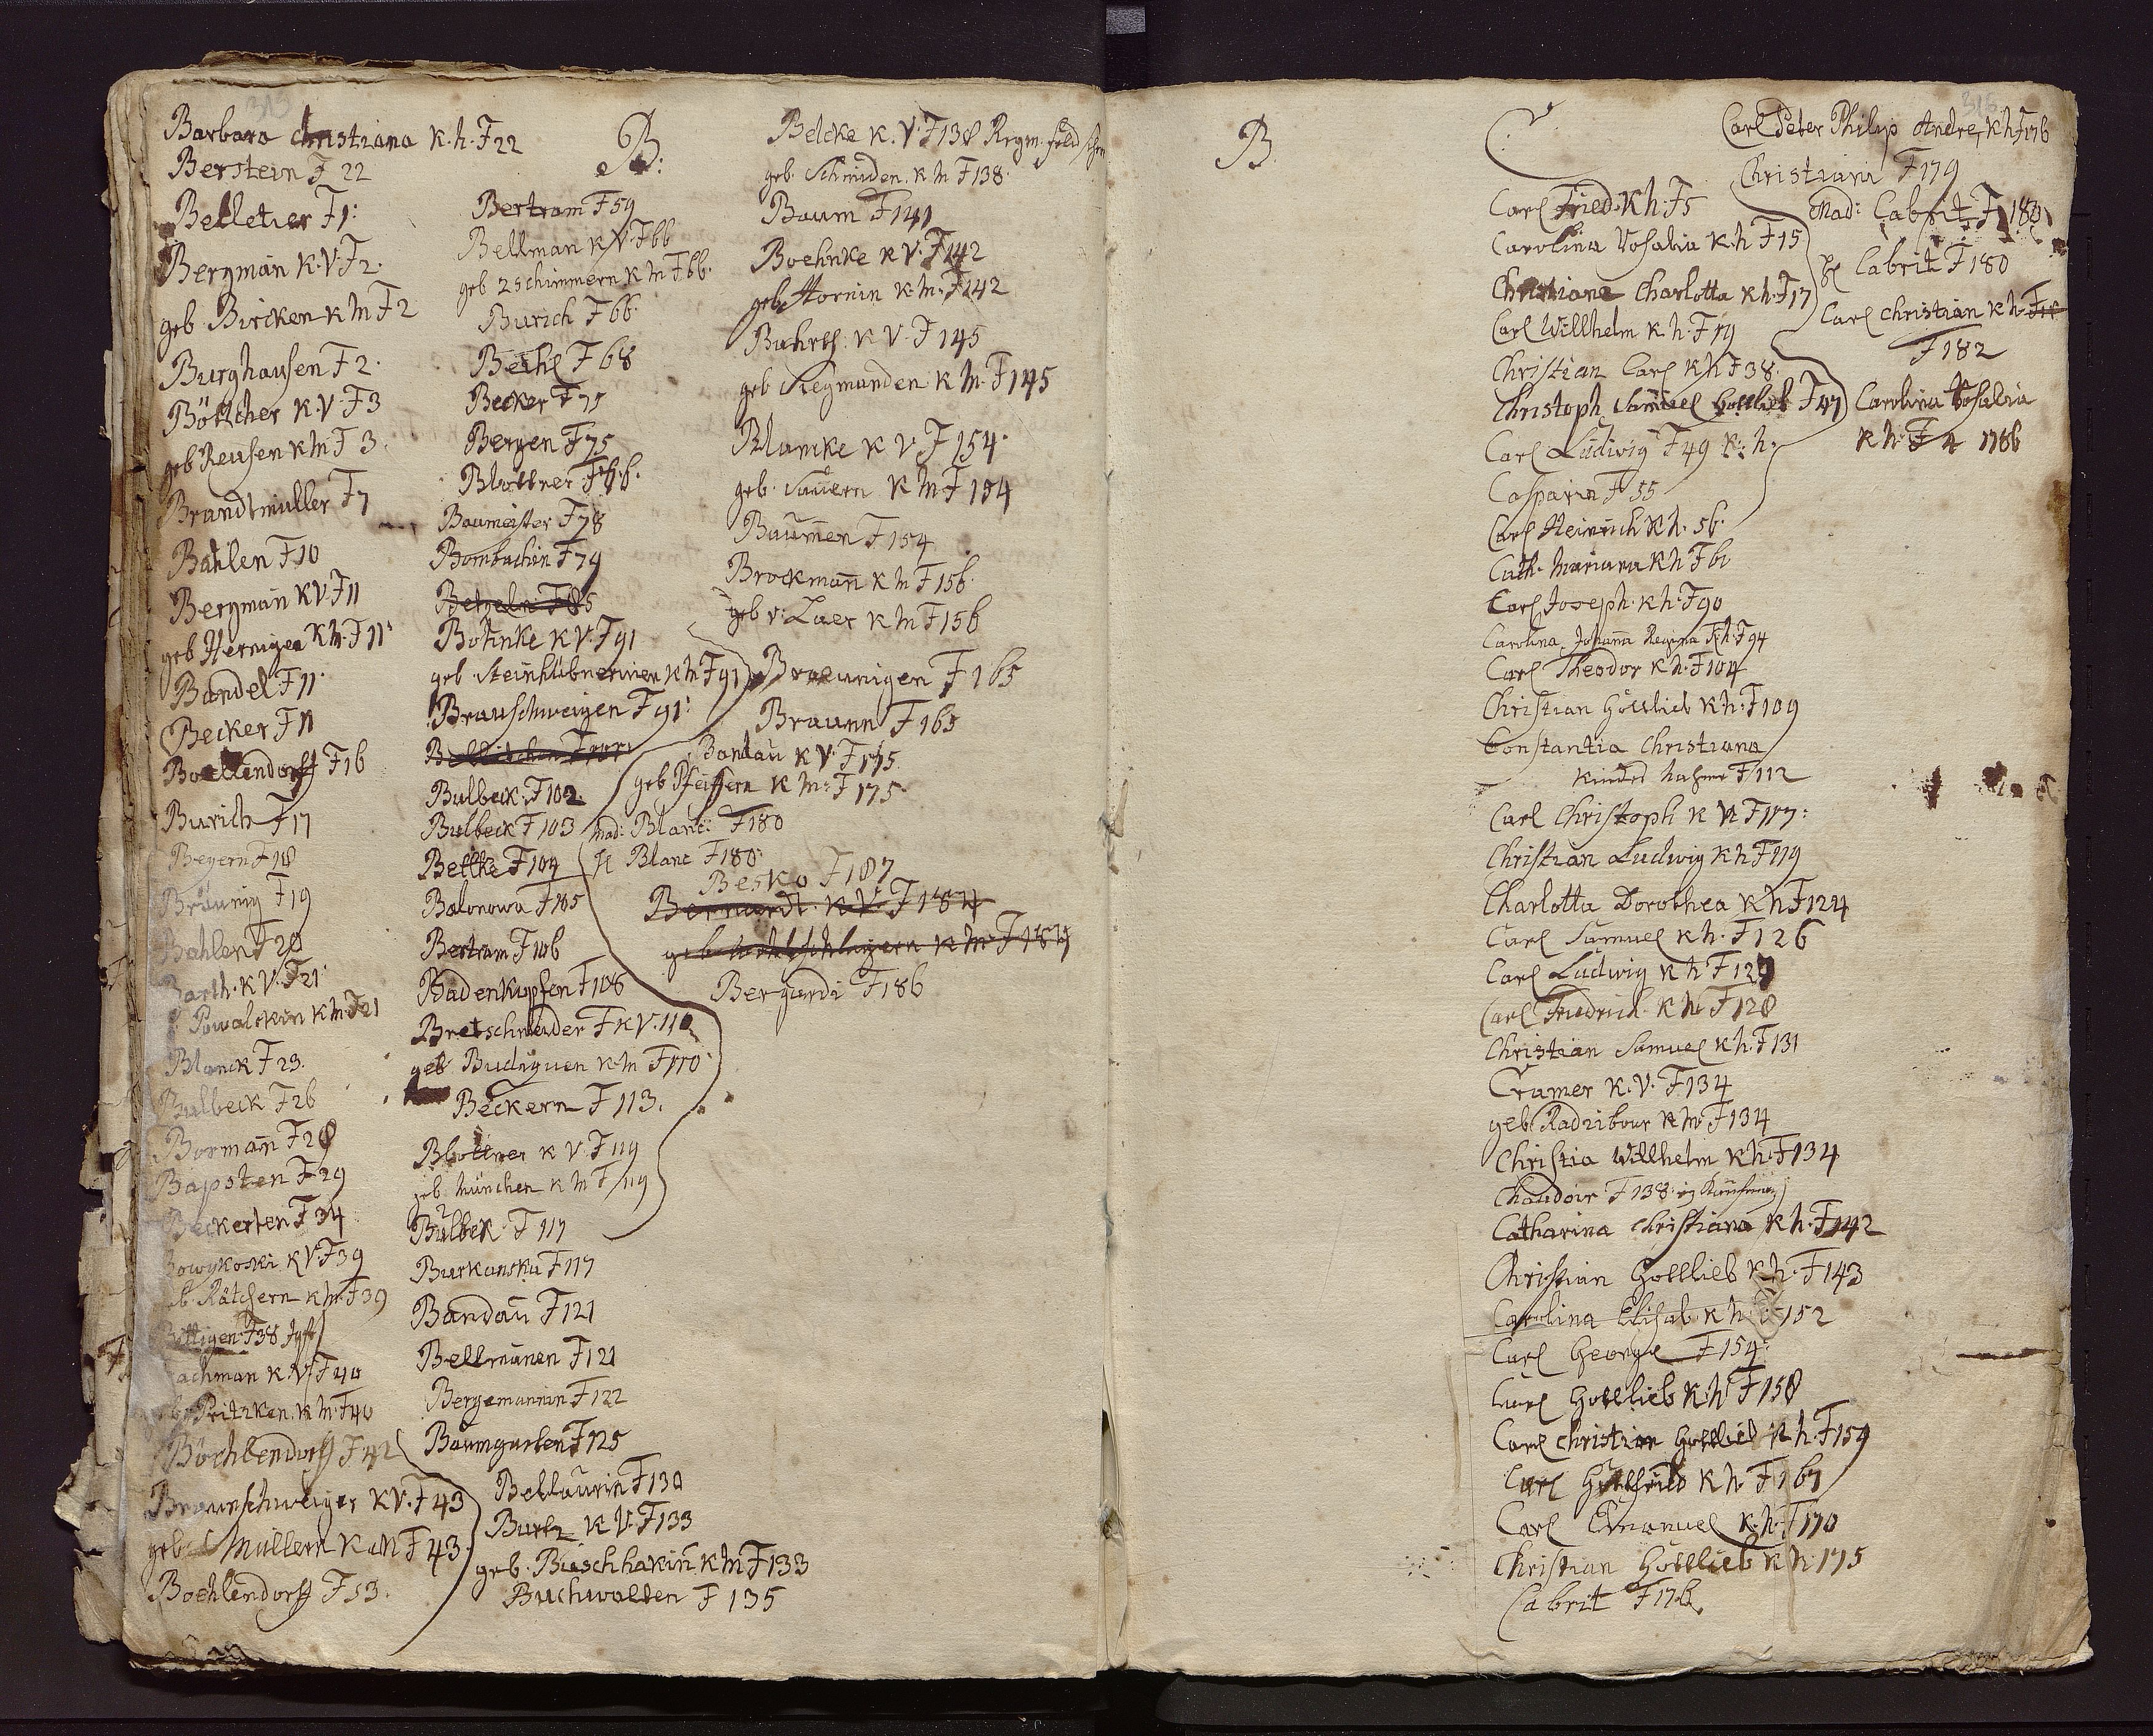 313
Barbara Christiana K. h. F 22
Berstein F 22
Belletier F 1:
Bergman K. V. F 2.
geb Bircken K M F 2
Burghausen F 2.
Böttcher K. V. F 3
geb Reusen K M F 3.
Brandtmuller F 7
Bahlen F 10
Bergman K V. F 11
geb Hernigen K M. F 11
Bandel F 11.
Becker F 11
Boellendorff F 16
Burich F 17
Beyern F 18
Bräunig F 19
Bahlen F 20
Barth. K V. F 21.
Powalskin K M. F 21
Blanck F 23.
Bulbeck F 26
Bormann F 28
Bapsten F 29
Beckerten F 34
K V. F 39
geb. Rätchern K M. F 39
Bittigen F 38
achman K. V. F 40
geb Pritzken. K M. F 40
Böchlendorff F 42
Braunschweiger K V. F 43
geb Mullern K M F 43.
Boehlendorff F 53.
B:
Bertram F 59
Bellman K V. F 66
geb Zschimmern K M F 66.
Burich F 66.
F 68
Becker F 75
Bergen F 75
Blottner
Baumeister F 78
Bombachin F 79
Betzeln F 85
Bohnke K V. F 91
geb. Steinhübnerinen K M F 91
Brauschweigen F 91:
Bulbeck. F 102.
Bulbeck F 103
Bettke F 104
Balonowa F 105
Bertram F 106
Badenkupfen F 108
Bretschneider F K V. 110
geb Budiguen K. M F 110
Beckern F 113.
Blottner K V. F 119
geb. München K M F 119
Bülbek. F 117
Burkanska F 117
Bandau F 121
Bellmanen F 121
Bergemannin F 122
Baumgarten F 125
Bellaurin F 130
Burtz K V. F 133
geb. Bieschhakin K M F 133
Buchwalden F 135
Belcke K. V. F 138 Regm. feld
geb. Schmiden. K M F 138.
Baum F 141
Boehnke K V. F 142
geb. Hornin K. M. F 142
K V. F 145
geb Siegmunden K M. F 145
Blancke K V. F 154.
geb. Sauern K M F 154
Baumen F 154
Brockmann K M F 156.
geb v: Laer K M F 156
Braeunigen F 165
Braunn F 165
Bandau K V. F 175
geb Pfeiffern K M. F 175
Mad: Blanc: F 180
H Blanc F 180.
Besko F 187
Bernardt. K V. F 184
geb K M. F 184
Bergardi F 186
B.
315
C.
Carl Fried. K h. F 5
Carolina Rosalia K. h F 15
Christiane Charlotta K h. F 17
Carl Willhelm K h. F 19
Christian Carl K h F 38.
Christoph Samuel Gottlieb F 47
Carl Ludwig F 49 K. h.
Casparin F 55
Carl Heinrich K h. 56.
Cath. Mariana K h F 61
Carl Joseph. K h. F 90
Carolina Johanna Regina K h. F 94
Carl Theodor K h. F 104
Christian Gottlieb K h. F 109
Constantia Christiana
Kinder nahme F 112
Carl Christoph K N F 117:
Christian Ludwig K h F 119
Charlotta Dorothea K h F 124
Carl Samuel K h. F 126
Carl Ludwig K h F 127
Carl Friedrich. K h F 128
Christian Samuel K h. F 131
Cramer K. V. F 134
geb. Radzibour K M. F 134
Christia Willhelm K h. F 134
Chaudoir F 138.
Catharina Christiana K h. F 142
Christian Gottlieb K h. F 143
Carolina Elisab K h. F 152
Carl George F 154:
Carl Gottlieb K. h. F 158
Carl Christian Gottlieb K h. F 159
Carl Gottfried K h. F 167
Carl Emanuel K. h. F 170
Christian Gottlieb K h. 175
Cabrit F 176
Carl Peter Philip Andre, K h F 176
Christiana F 179
Mad: Cabrit F 180
H Cabrit F 180
Carl Christian K h.
F 182
Carolina Rosalia
K h. F 4 1786